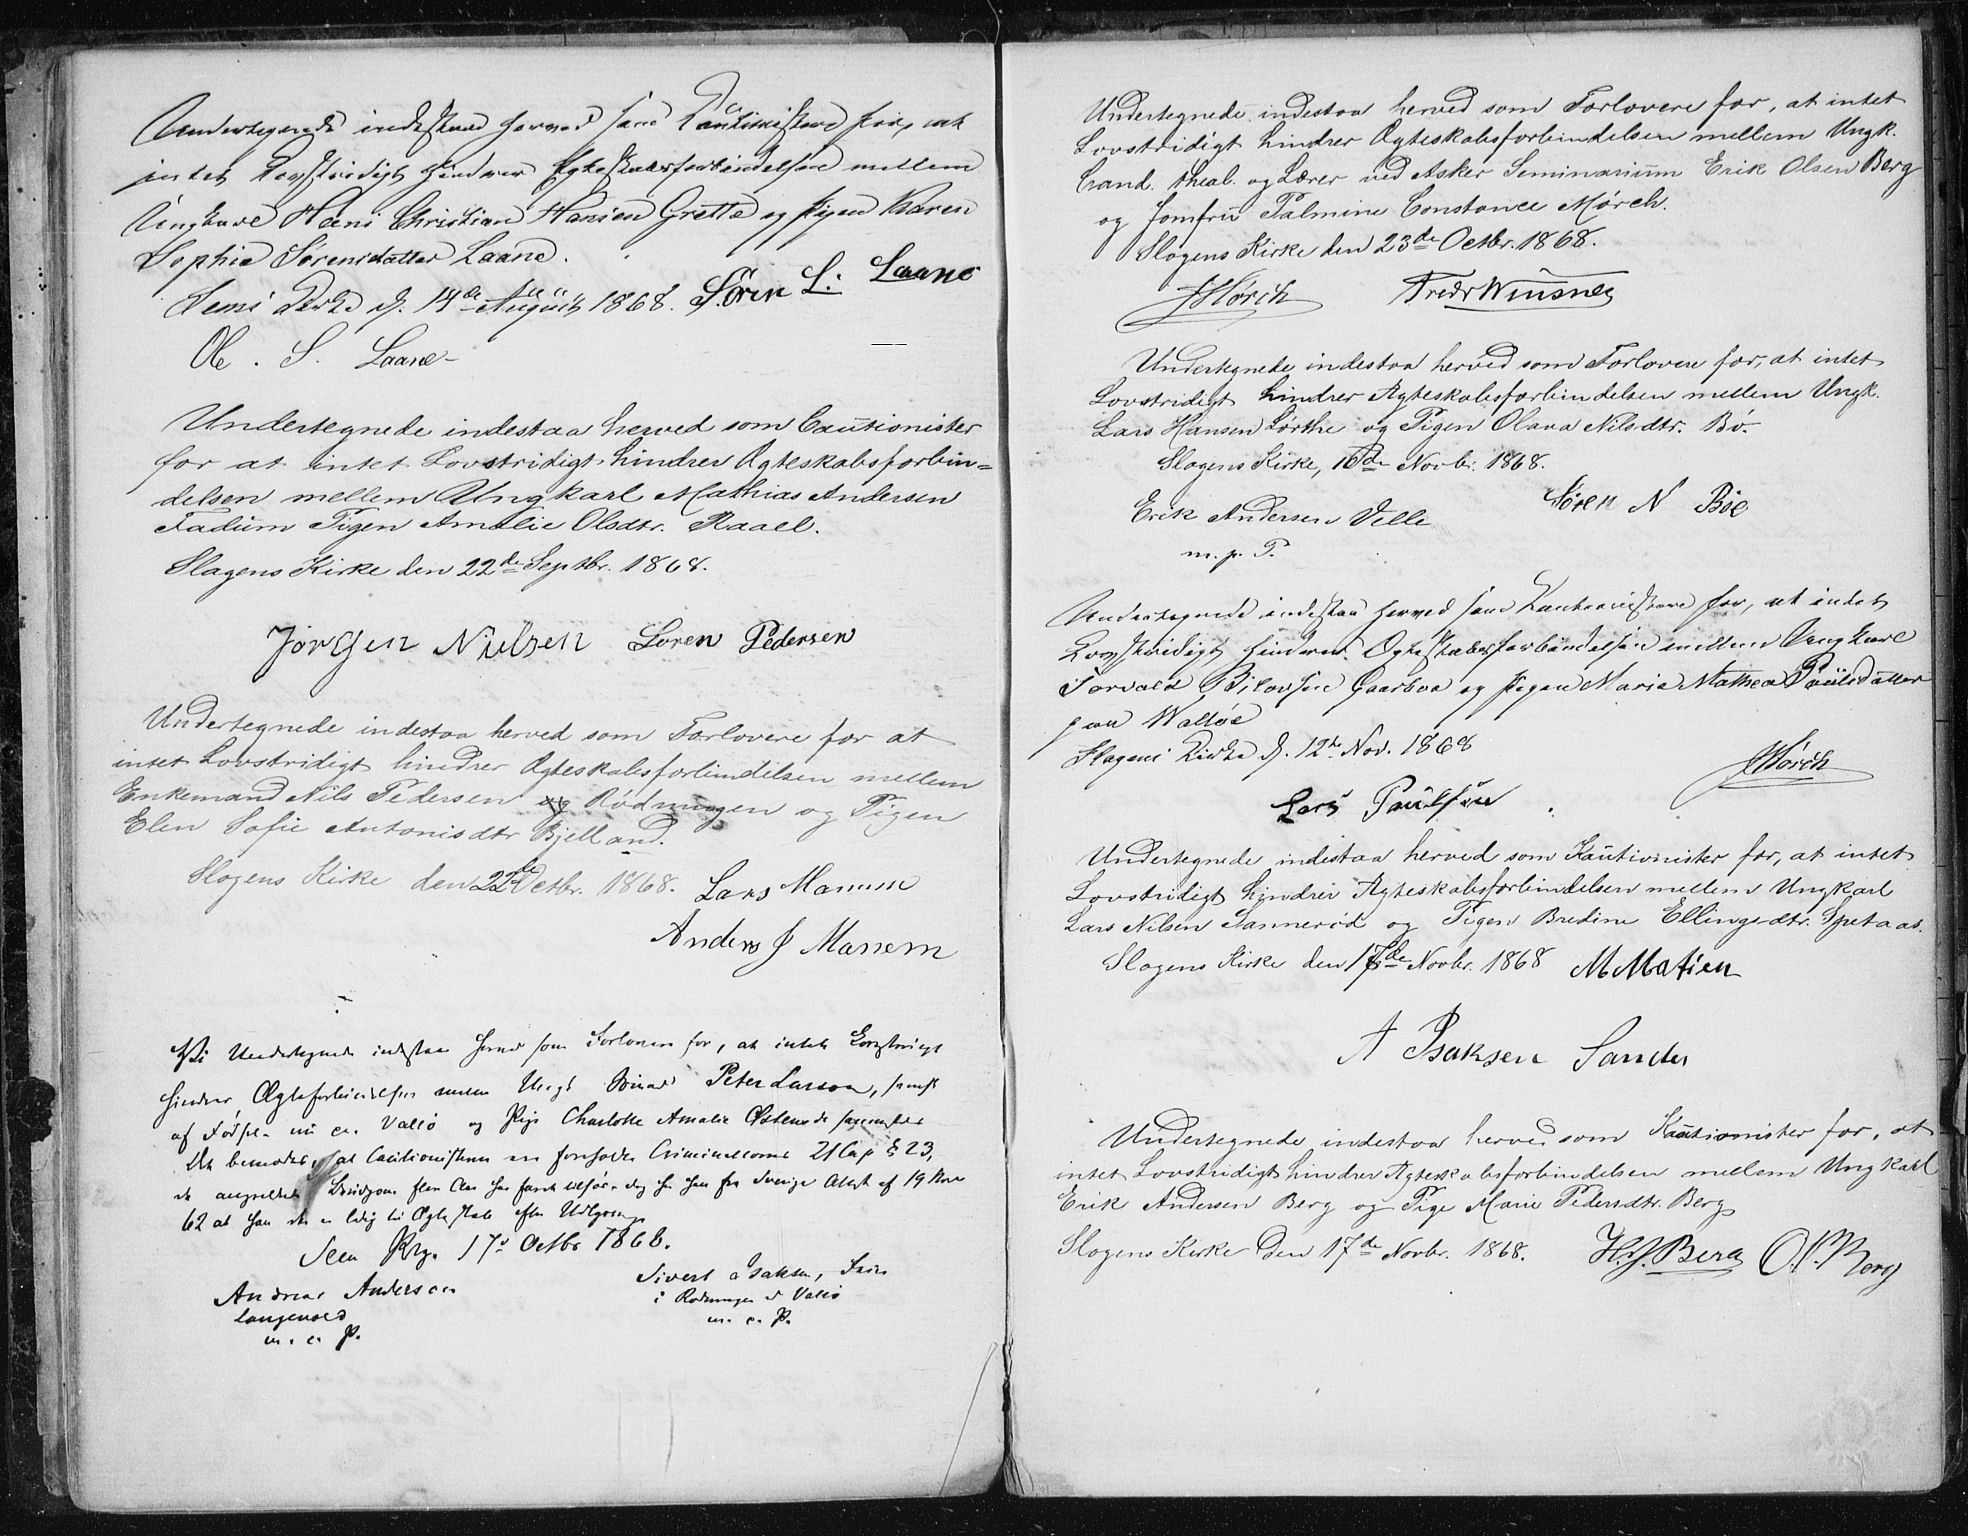 Undertegnede indestaae herved som Cautionister for, at
intet Lovstridigt hindrer Egteskabsforbindelsen mellem
Ungkarl Hans Christian Hansen Grette og Pigen Karen
Sophie Sørensdatter Laane.
Sems Kirke d. 14de August 1868. Søren L. Laane
Ole. S. Laane
Undertegnede indestaa herved som Cautionister
for at intet Lovstridigt hindrer Ægteskabsforbin=
delsen mellem Ungkarl Mathias Andersen
Fadum Pigen Amalie Olsdtr. Raael.
Slagens Kirke den 22de Septbr. 1868.
Jørgen Nielsen Soren Pedersen
Undertegnede indestaa herved som Forlovere for at
intet Lovstridigt hindrer Ægteskabsforbindelsen mellem
Enkemand Nils Pedersen Rødningen og Pigen
Elen Sofie Antonisdtr Bjelland.
Slagens Kirke den 22de Octbr. 1868. Lars Manum
Anders J Manem
Vi Undertegnede indestaa herved som Forlovere for, at intet Lovstridigt
hindrer Ægteforbindelsen mellem Ungk Peter Larson,
af nu Vallø og Pige Charlotte Amalie
Det bemærkes, at Cautionisterne ere foreholdte Criminallovens 21 Cap § 23,
fra Sverige Attest af 19 Nov
62 at han er ledig til Ægteskab efter
Sem Prg. 17de Octbr 1868.
Andreas Anderson Sivert Isaksen,
i Rødningen Vallø
m. p. P. m. p. P.
Undertegnede indestaa herved som Forlovere for, at intet
Lovstridigt hindrer Ægteskabsforbindelsen mellem Ungk.
Cand. theol. og Lærer ved Asker Seminarium Erik Olsen Berg
og Jomfru Palmine Constance Mørch.
Slagens Kirke den 23de Octbr. 1868.
JMørch Fredr Winsnes
Undertegnede indestaa herved som Forlovere for, at intet
Lovstridigt hindrer Ægteskabsforbindelsen mellem Ungk.
Lars Hansen Lørthe og Pigen Olava Nilsdtr. Bø.
Slagens Kirke, Novbr. 1868.
Søren N Bøe
Erik Andersen Velle
m. p. P.
Undertegnede indestaa herved som Kautionistere for, at intet
Lovstridigt hindrer Ægteskabsforbindelsen mellem Ungkarl
Torvald og Pigen Maria Mathea Paulsdatter
paa Walløe
Slagens Kirke d. 12te Nov. 1868
JMørch
Lars Paulsen
Undertegnede indestaa herved som Kautionister for, at intet
Lovstridigt hindrer Ægteskabsforbindelsen mellem Ungkarl
Lars Nilsen Sannerød og Pigen Bredine Ellingsdtr. Spetaas.
Slagens Kirke den 17de Novbr. 1868 M Matisen
A Isaksen Sande
Undertegnede indestaa herved som Kautionister for, at
intet Lovstridigt hindrer Ægteskabsforbindelsen mellem Ungkarl
Erik Andersen Berg og Pige Marie Pedersdtr. Berg
Slagens Kirke den 17de Novbr. 1868. H. J. Berg O. Berg